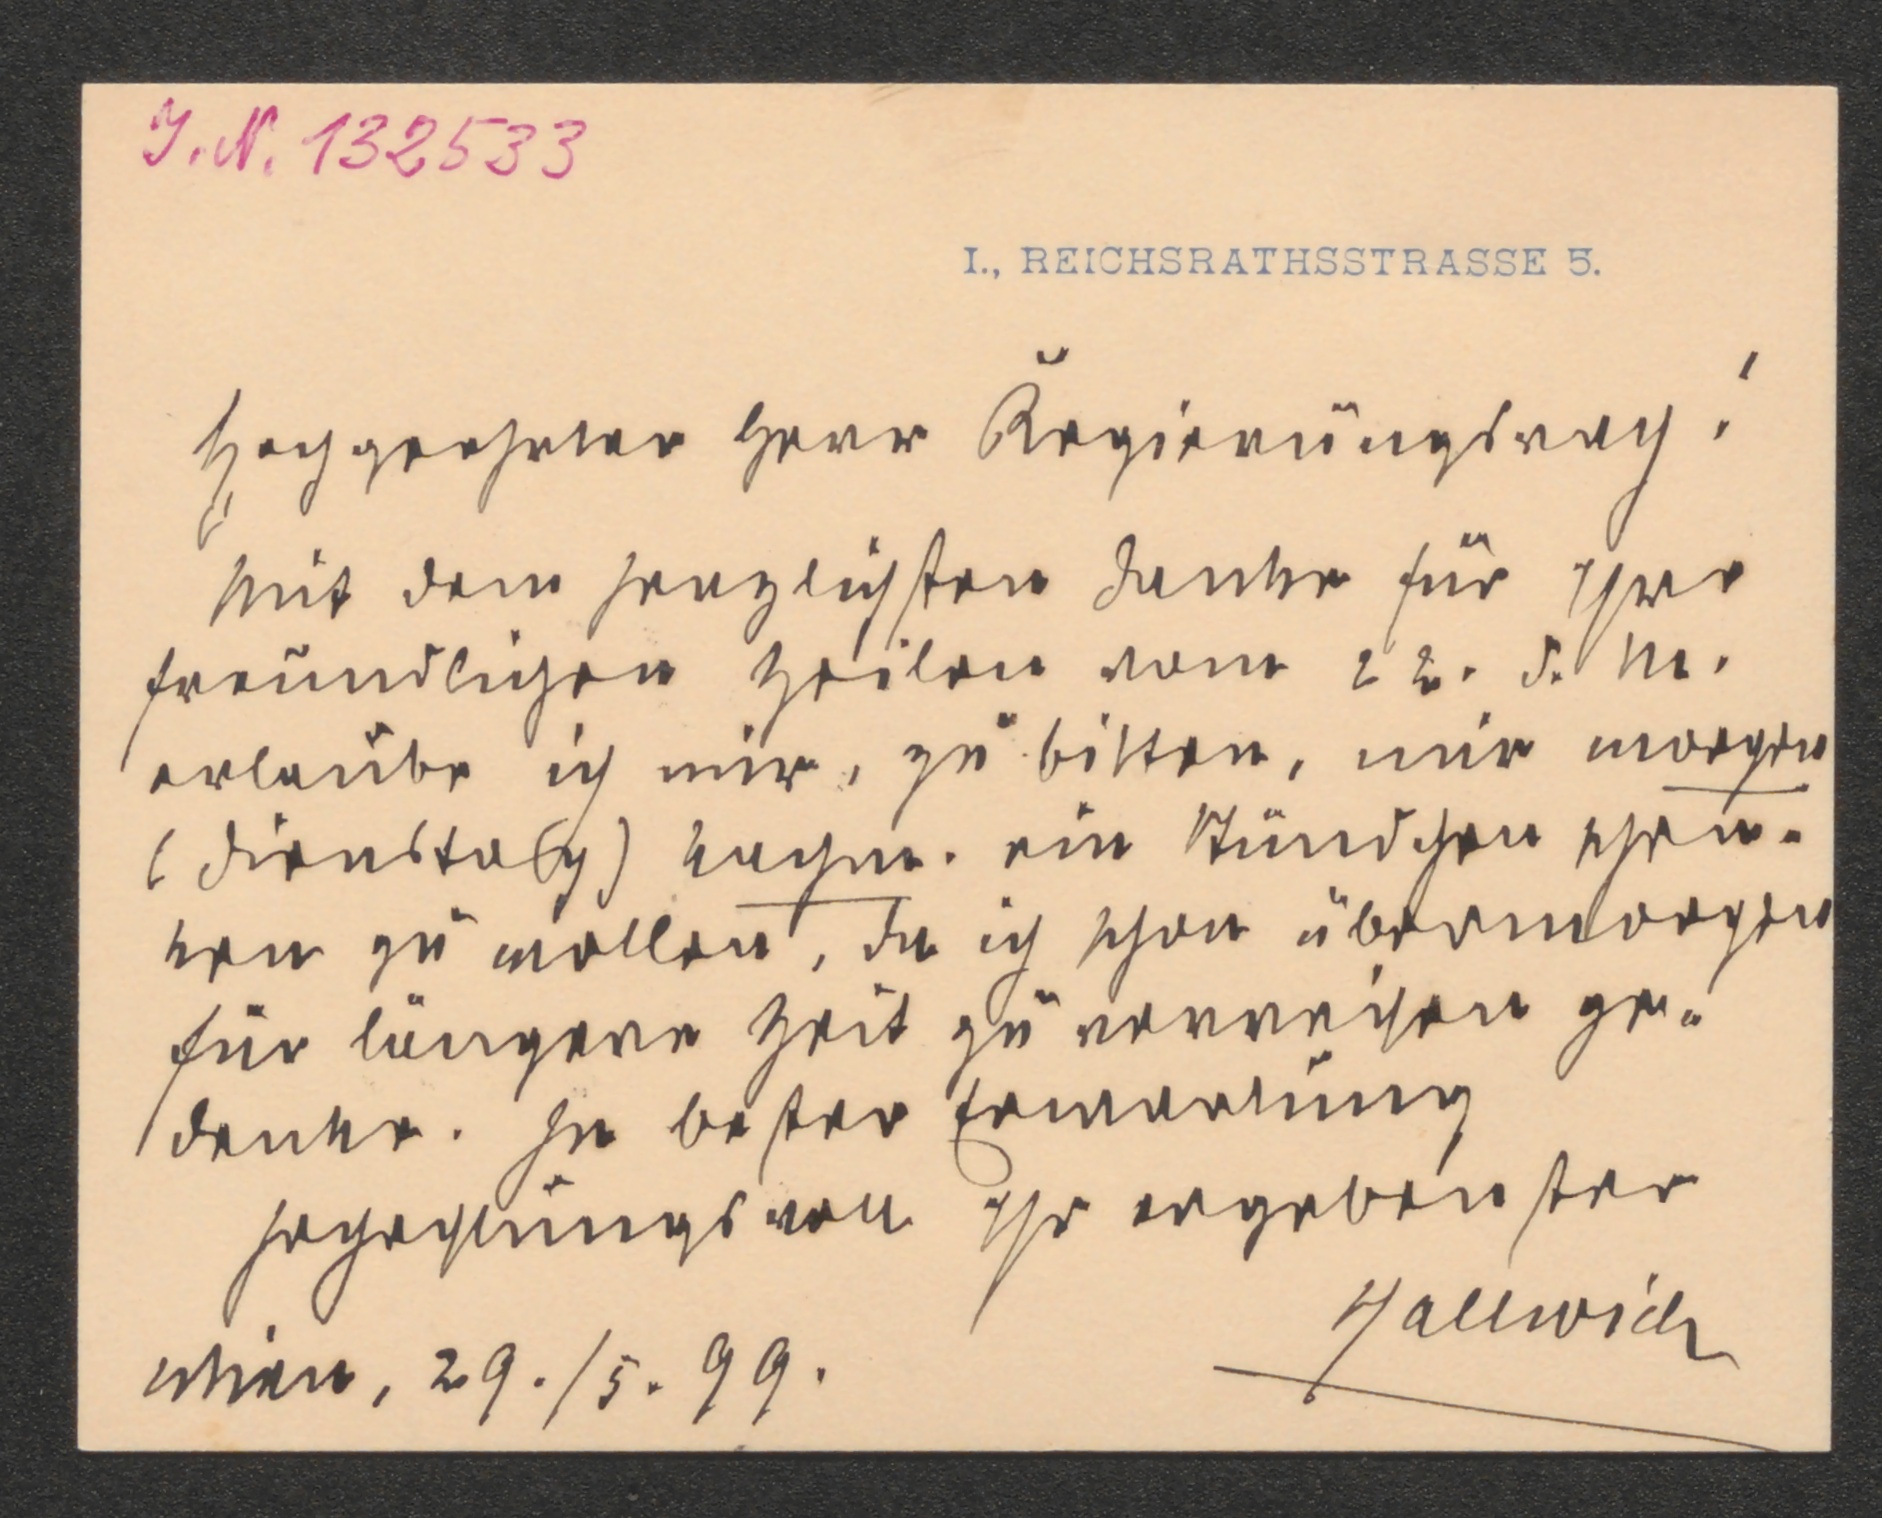 J. N. 132533
I., REICHSRATHSSTRASSE 5.
Hochgeehrter Herr Regierungsrath!
Mit dem herzlichsten Danke für Ihre
freundlichen Zeilen vom 22. d. M.
erlaube ich mir, zu bitten, mir morgen
(Dienstag) nachm. ein Stündchen schen-
ken zu wollen, da ich schon übermorgen
für längere Zeit zu verreisen ge-
denke. In bester Erwartung
hochachtungsvoll Ihr ergebenster
Hallwich
Wien, 29./5. 99.